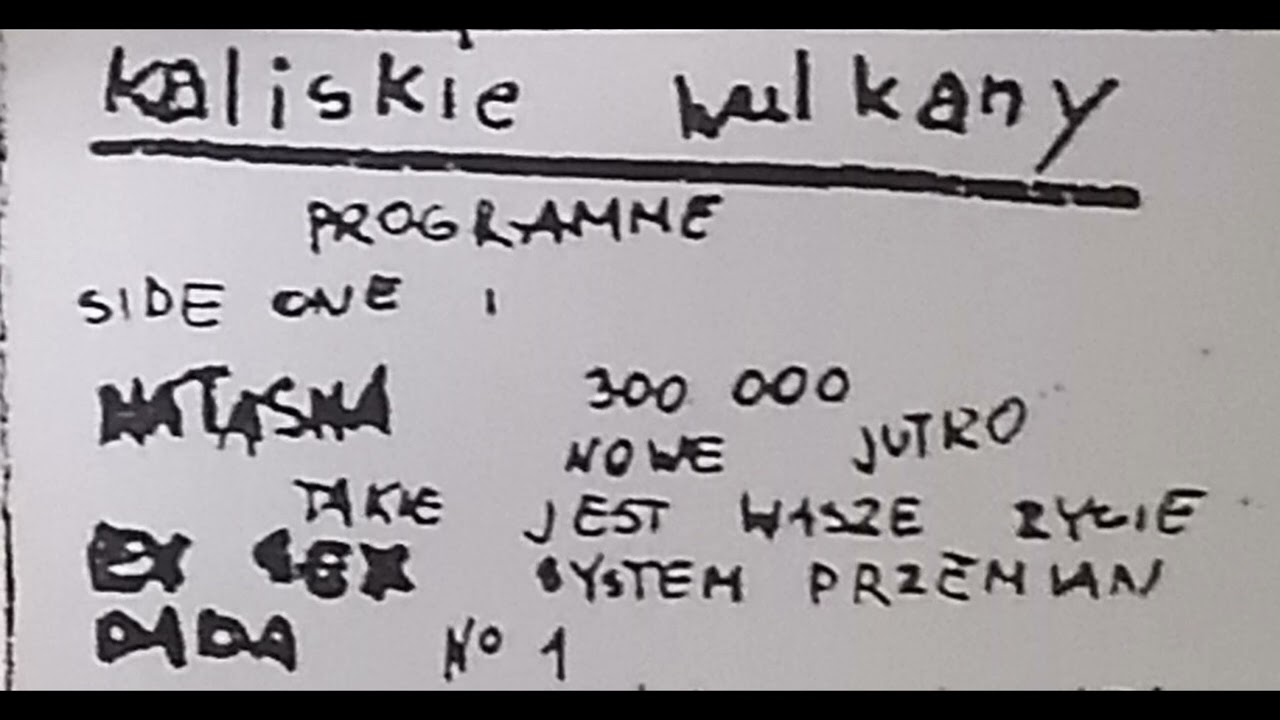 kaliskie wulkany
PROGRAMME
SIDE ONE :
NATASHA 300 000
NOWE JUTRO
TAKIE JEST WASZE ZYCIE
EX LEX SYSTEM PRZEMIAN
DADA No 1